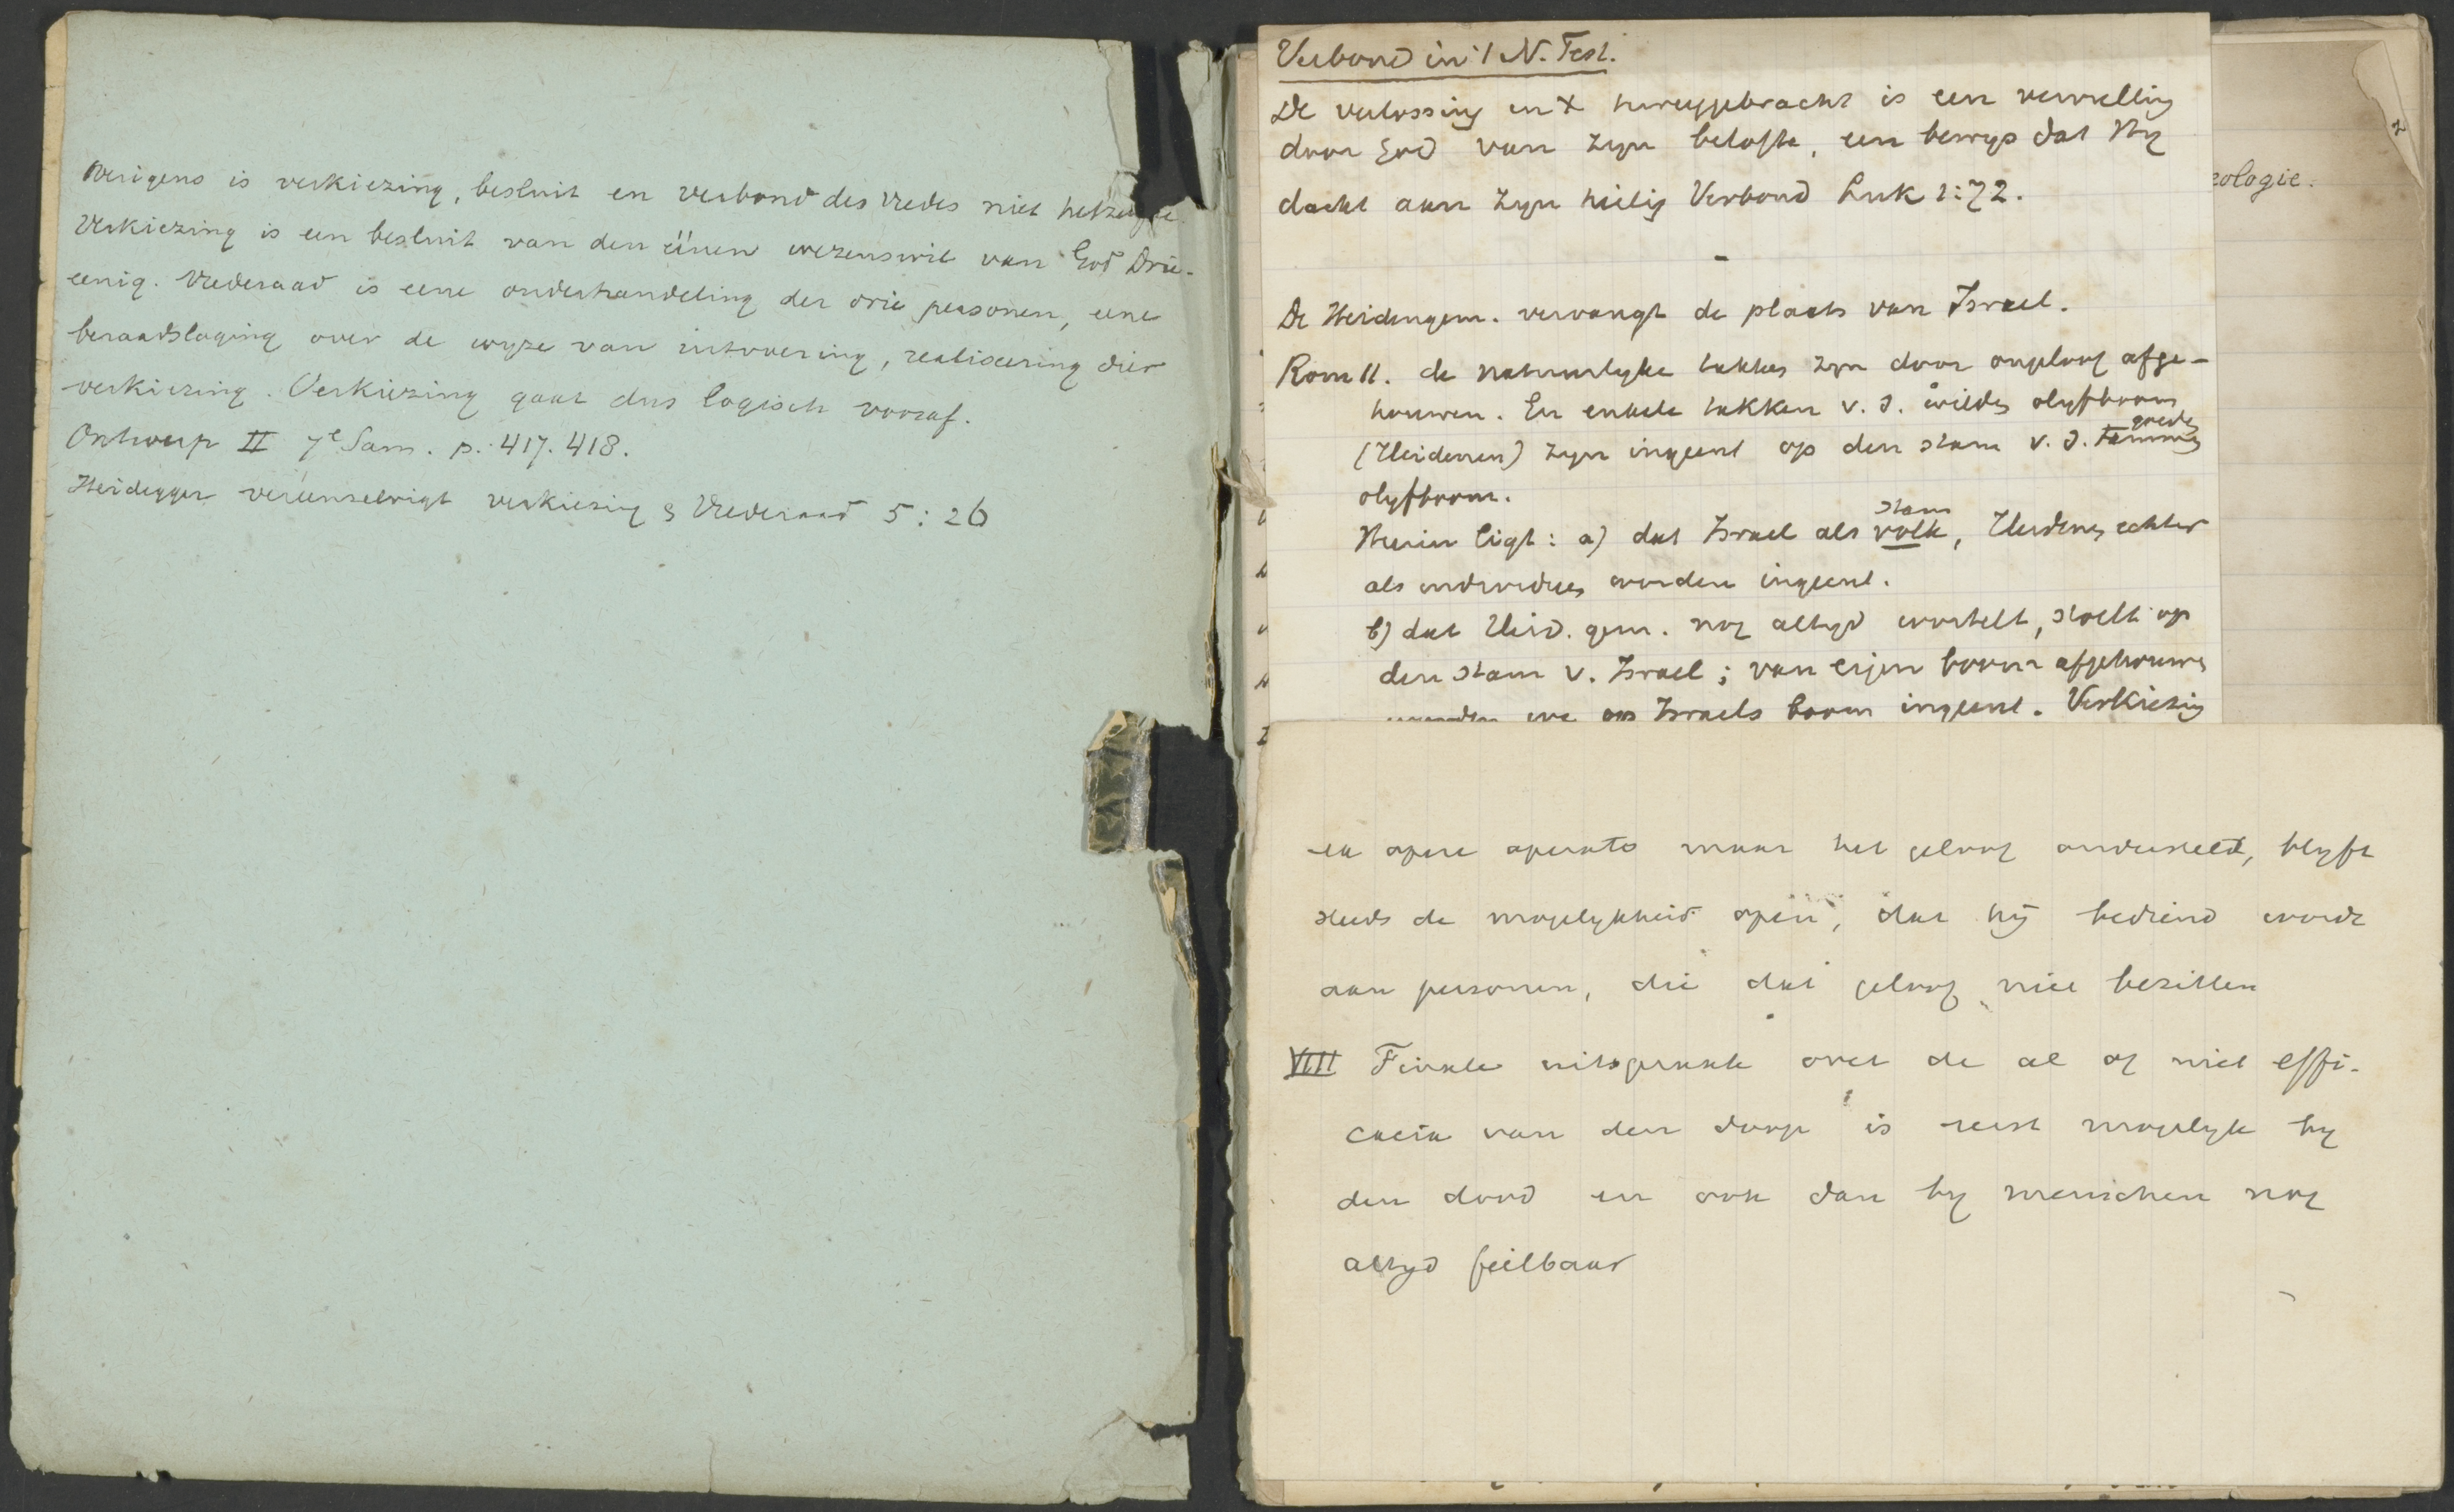 Overigens is verkiezing, besluit en verbond des vredes niet hetzelfde.
Verkiezing is een besluit van den éénen wezenswil van God Drie-
eenig. Vrederaad is eene onderhandeling der drie personen, eene
beraadslaging over de wyze van uitvoering, realiseering dier
verkiezing. Verkiezing gaat dus logisch vooraf.
Ontwerp II 7e Sam. p. 417. 418.
Heidegger vereenzelvigt verkiezing & Vrederaad 5:26
Verbond in 't N. Test.
De verlossing in X teweeggebracht is een vervulling
door God van zyn belofte, een bewys dat Hy
dacht aan zyn heilig Verbond Luk 1:72.
De Heidengem. vervangt de plaats van Israel.
Rom 11. de natuurlyke takken zyn door ongeloof afge-
houwen. En enkele takken v. d. wilden olyfboom
(Heidenen) zyn ingeent op den stam v. d. tammen goeden
olyfboom.
Hierin ligt: a) dat Israel als stam volk, Heidenen echter
als individuen worden ingeent.
b) dat Heid. gem. nog altyd wortelt, stoelt op
den stam v. Israel; van eigen boom afgehouwen
worden we op Israels boom ingeent. Verkiezing
eologie.
2
ex opere operato maar het geloof onderstelt, blyft
steeds de mogelykheid open, dat hij bediend wordt
aan personen, die dat geloof niet bezitten
VIII Finale uitspraak over de al of niet effi-
cacia van den doop is eerst mogelyk by
den dood en ook dan by menschen nog
altyd feilbaar